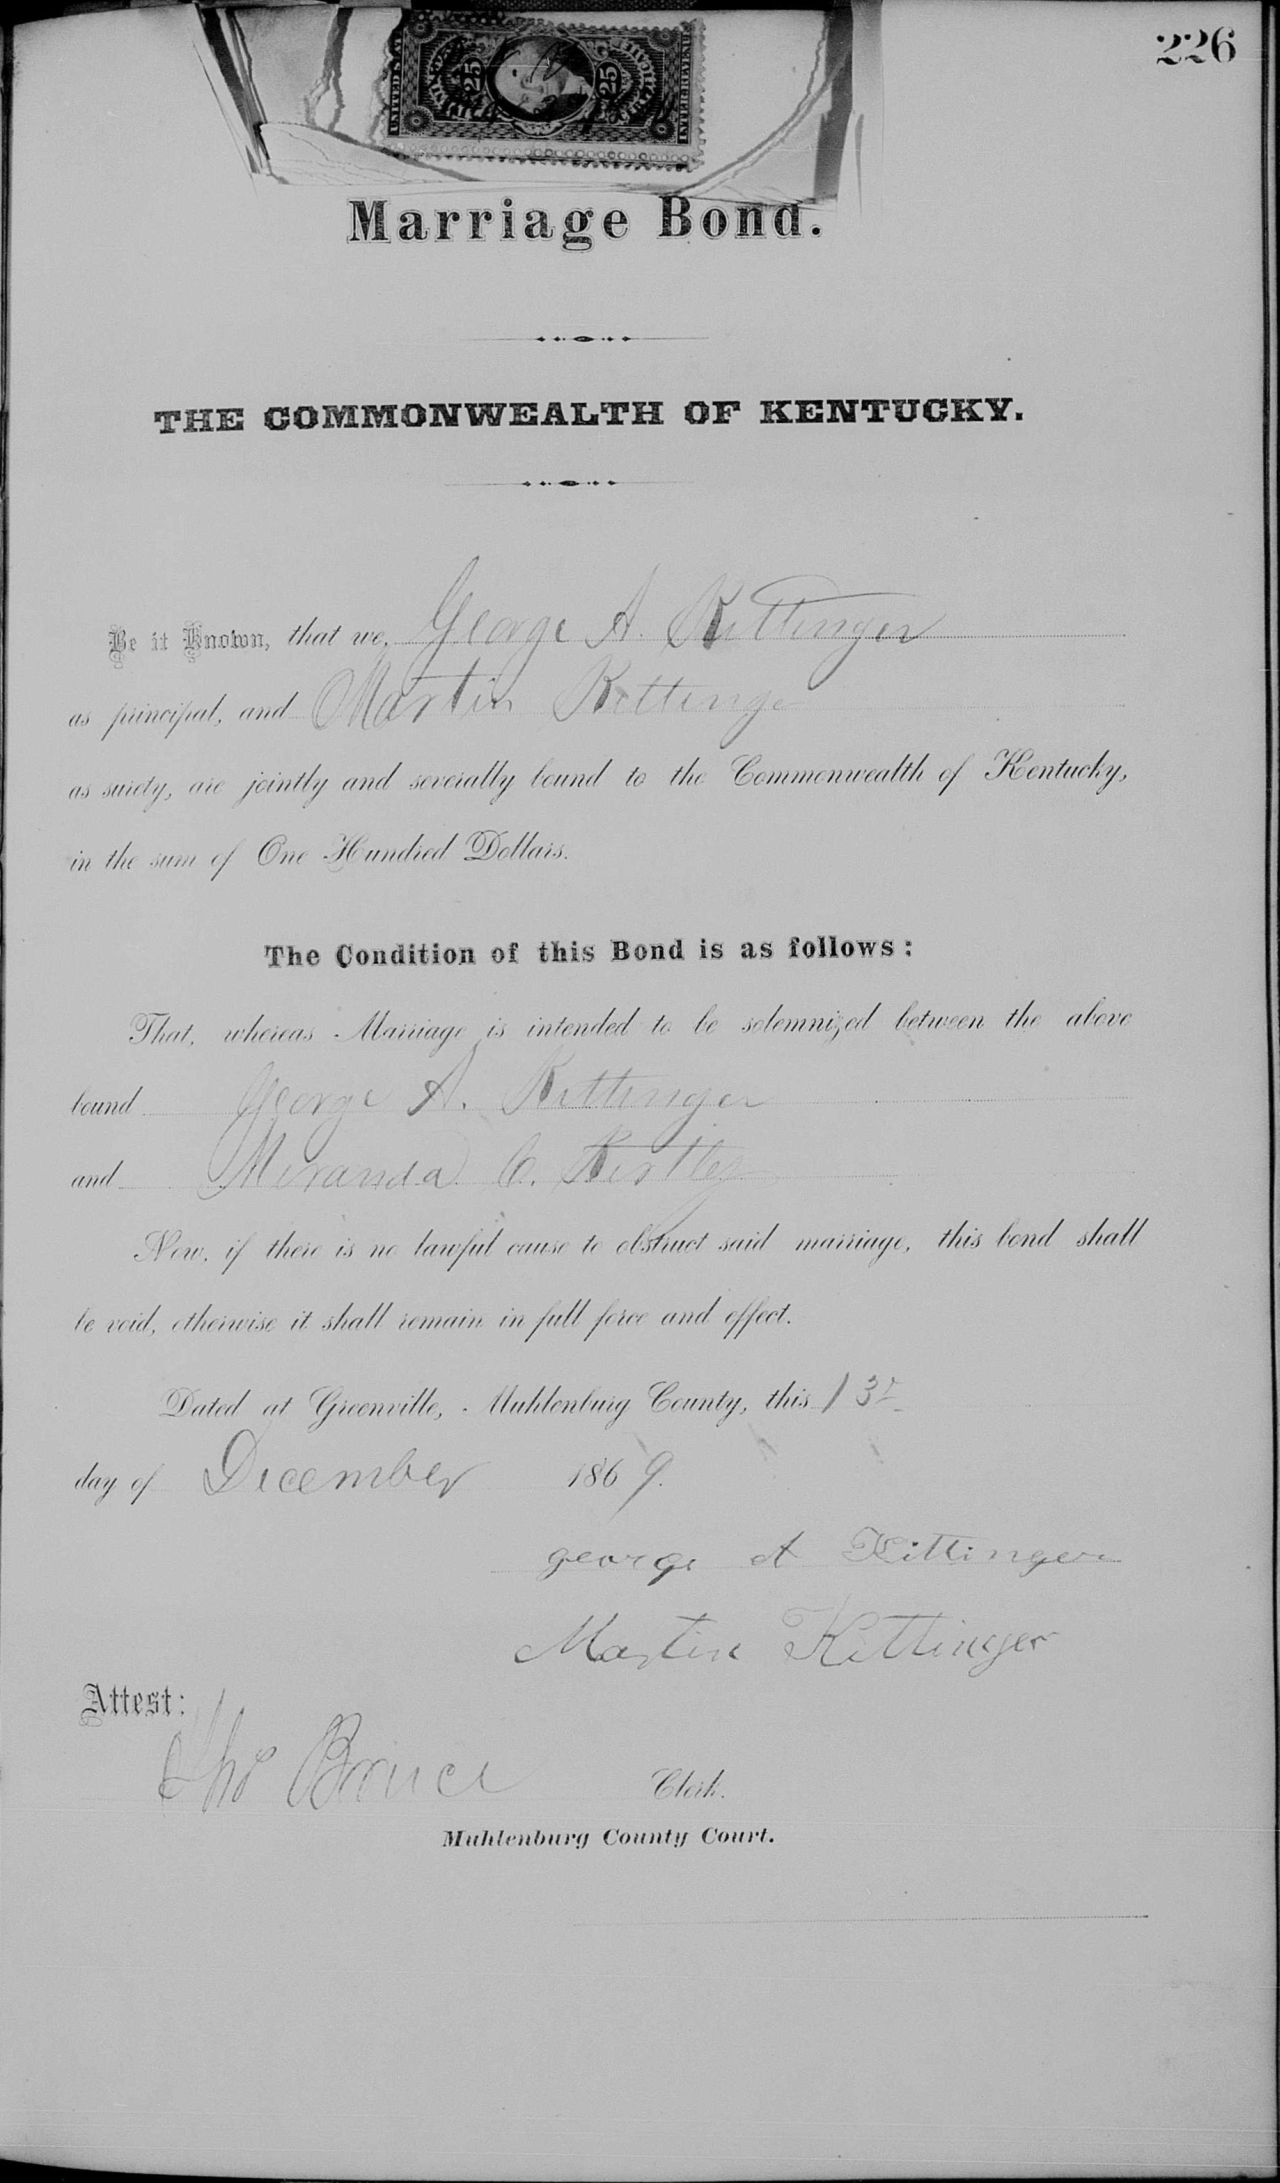 226
UNITED STATES
25
25
INTER. REVENUE
Marriage Bond.
THE COMMONWEALTH OF KENTUCKY.
Be it Known, that we, George A. Kittinger
as principal, and Martin Kittinge
as surety, are jointly and severally bound to the Commonwealth of Kentucky,
in the sum of One Hundred Dollars.
The Condition of this Bond is as follows:
That, whereas Marriage is intended to be solemnized between the above
bound George A. Kittinger
and Miranda C. Kirtley
Now, if there is no lawful cause to obstruct said marriage, this bond shall
be void, otherwise it shall remain in full force and effect.
Dated at Greenville, Muhlenburg County, this 13
day of December 1869.
george A Kittinger
Martin Kittinger
Attest:
Tho Bruce Clerk.
Muhlenburg County Court.